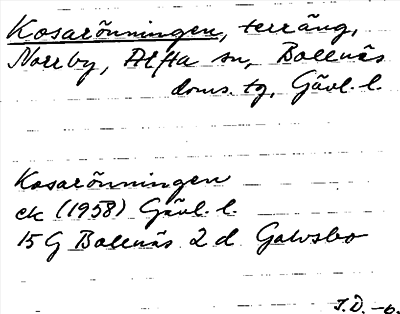 Kosarönningen, terräng,
Norrby, Alfta sn, Bollnäs
doms. tg, Gävl. l.
Kosarönningen
ek (1958) Gävl. l.
15 G Bollnäs 2 d Galvsbo
J.D. -o.